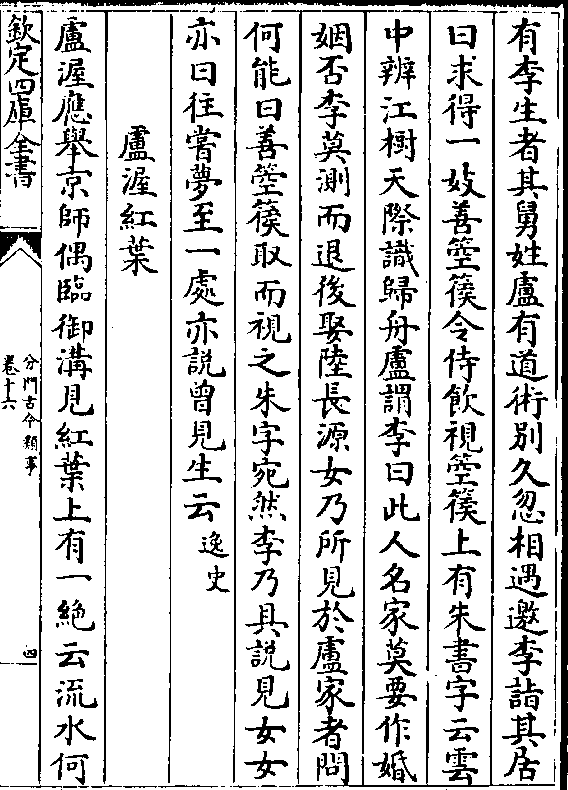 有李生者其舅姓盧有道術別久忽相遇邀李詣其居
曰求得一妓善箜篌令侍飲視箜篌上有朱書字云雲
中辨江樹天際識歸舟盧謂李曰此人名家莫要作婚
姻否李莫測而退後娶陸長源女乃所見於盧家者問
何能曰善箜篌取而視之朱字宛然李乃具説見女女
亦曰往嘗夢至一處亦説曾見生云逸史
盧渥紅葉
盧渥應舉京師偶臨御溝見紅葉上有一絶云流水何
欽定四庫全書
分門古今類事
卷十六
四